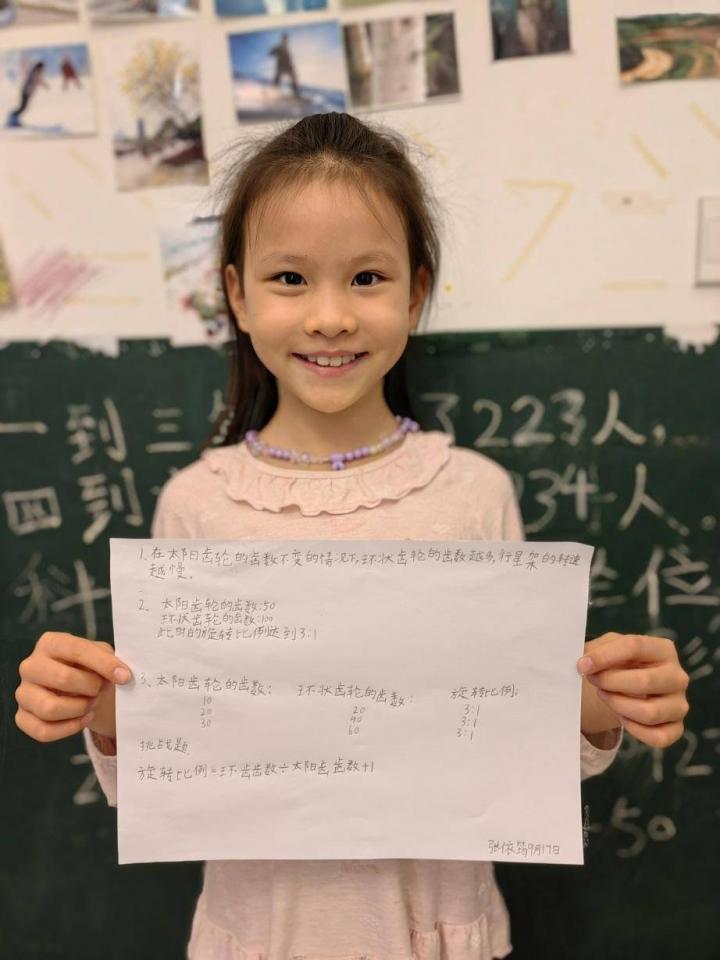 一到三
3223人,
四到
234人.
位
1、在太阳齿轮的齿数不变的情况下,环状齿轮的齿数越多,行星架的转速
越慢。
2、太阳齿轮的齿数:50
环状齿轮的齿数:100
此时的旋转比例达到3:1
3、太阳齿轮的齿数: 环状齿轮的齿数: 旋转比例:
10 20 3:1
20 40 3:1
30 60 3:1
挑战题
旋转比例=环齿齿数÷太阳齿齿数+1
张依筠9月17日
50